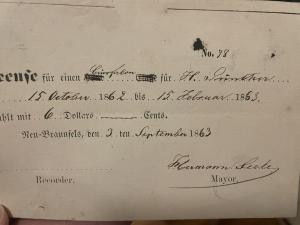 No. 78
cense für einen für H.
15 October 1862 bis 15 Februar 1863.
ahlt mit 6 Dollars Cents.
Neu-Braunfels, den 3 ten September 1863
Hermann Seele
Recorder. Mayor.